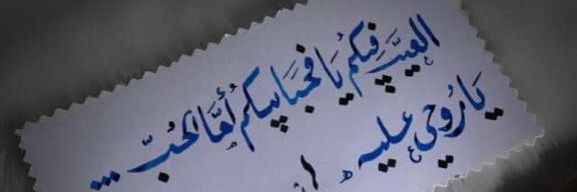 العَيبُ فِيكُم يَا فِي حَبَايِبكُم أمَّا الحُبّ ...
يَا رُوحِي عَليه